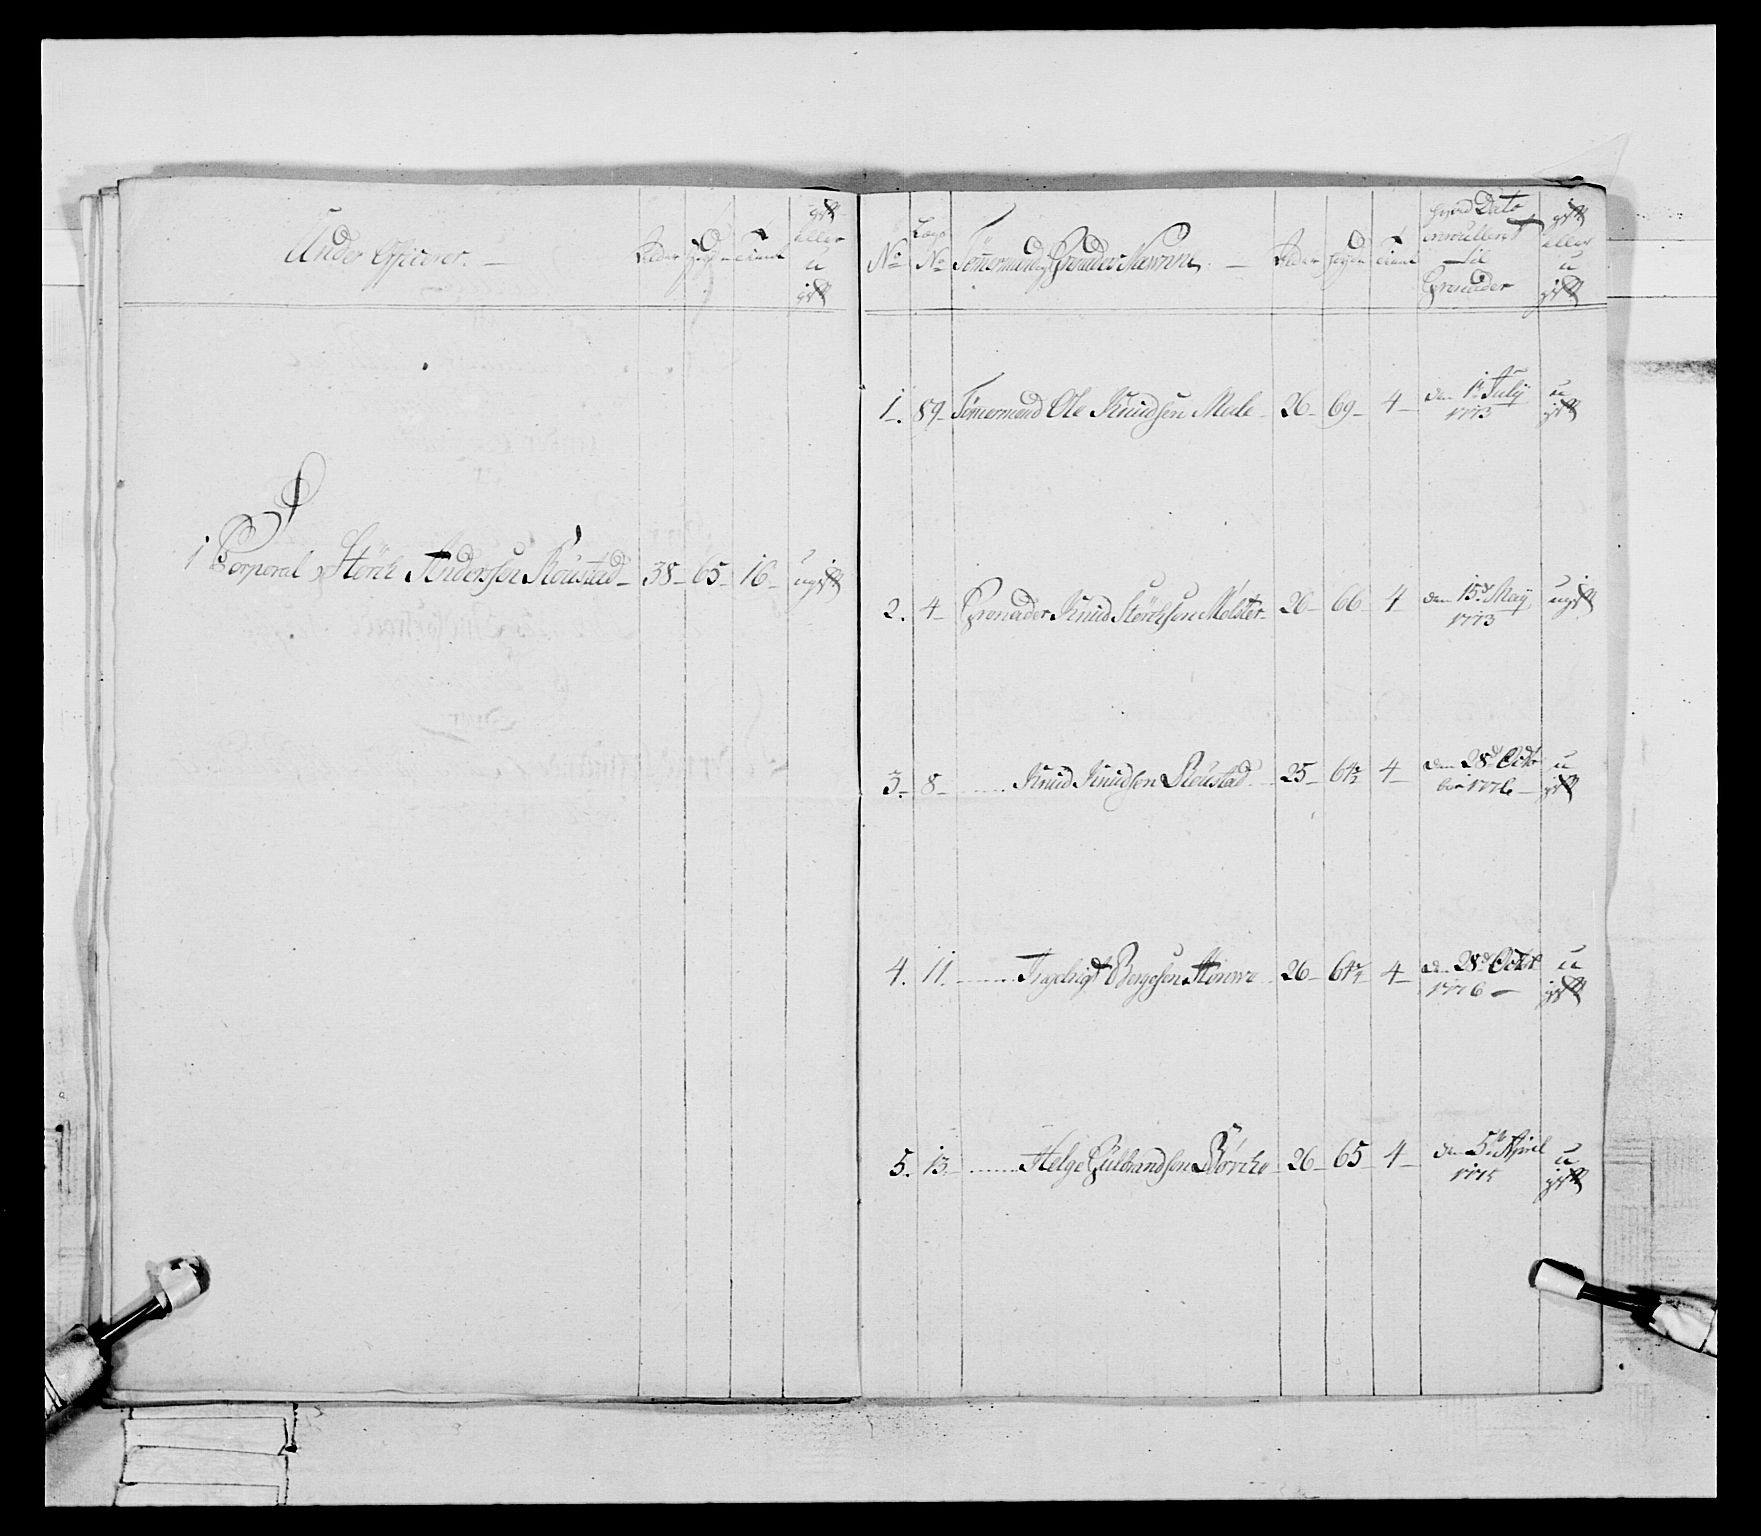 Under Officerer.
Alder
Høyde
Tieniste
gift
eller
u
gift
1 Corporal Störck Andersøn Röustad 38 65 16 ugift
No
Lægs
No
Tömermænd og Grenader Navne
Alder
Høyde
Tieniste
hvad Dato
enroullert
til
Grenader
gift
eller
u
gift
1. 89 Tömermand Ole Knudsen Mæle 26 69 4 den 1te July
1773
u
gift
2. 4 Grenader Knud Störcksen Mølster 26 66 4 den 15d May
1773
ugift
3. 8 Knud Knudsen Röustad 25 64½ 4 den 28d Octo
ber 1776
u
gift
4. 11 Ingebrigt Børgesen 26 4 den 28d Octbr
1776
u
gift
5. 13 Helge Gulbrandsen 26 65 4 den 5te April
1775
u
gift